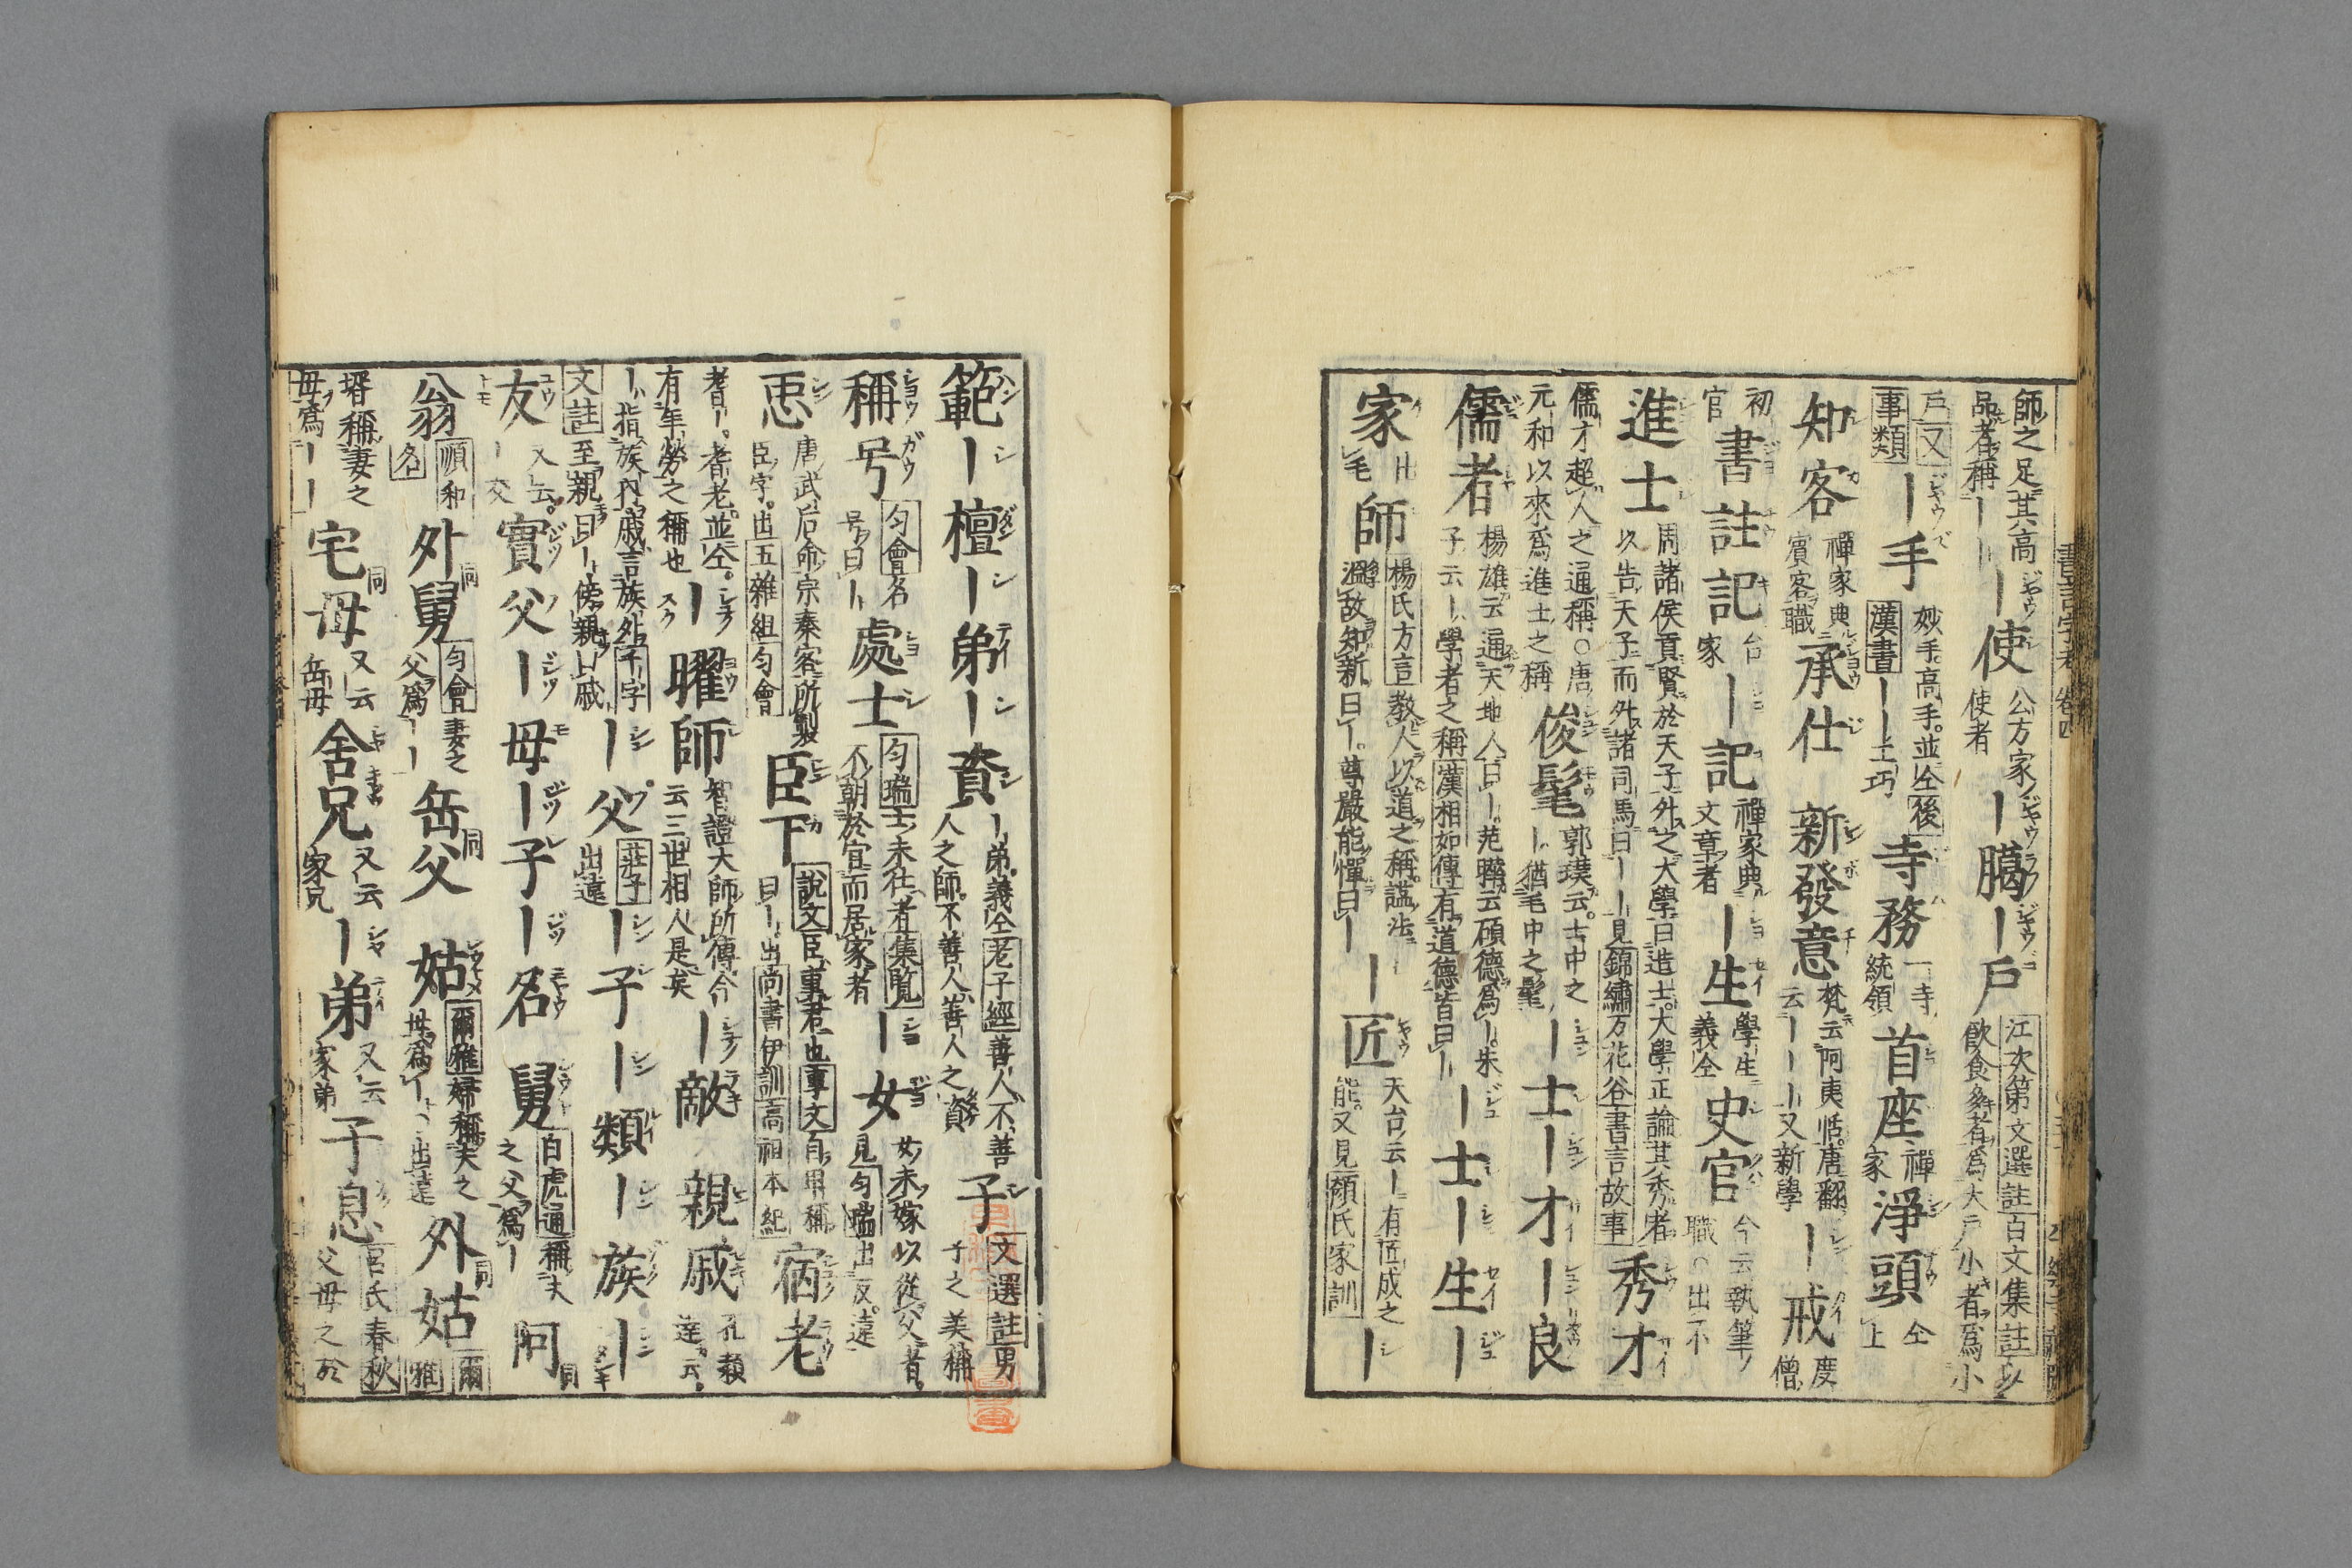 師之足其高
品者稱｜｜
｜使
公方家
使者
｜臈｜戶
江次第文選註白文集註以
飲食多者爲大戶小者爲小
戶又
事類
｜手
妙手高手並仝後
漢書｜｜工巧
寺務
一寺
統領
首座
禪
家
淨頭
仝
上
知客
禪家典
賓客職
承仕
新發意
梵云阿夷恬唐翻
云｜｜｜又新學
｜戒
度
僧
初
官
書註記
台
家
｜記
禪家典
文章者
｜生
學生
義仝
史官
今云執筆
職○出不
進士
周諸侯貢賢於天子外之大學曰造士大學正論其秀者
以告天子而外諸司馬曰｜｜｜見錦繡万花谷書言故事
秀才
儒才超人之通稱○唐
元和以來爲進士之稱
俊髦
郭璞云士中之
｜猶毛中之髦
｜士｜才｜良
儒者
楊雄云通天地人曰｜范曄云碩德爲｜朱
子云｜學者之稱漢相如傳有道德皆曰｜
｜士｜生｜
家
師
楊氏方言教人以道之稱諡法
溫故知新曰｜尊嚴能憚曰｜
｜匠
天台云｜有匠成之
能又見顏氏家訓
｜
範｜檀｜弟｜資
｜弟義仝老子經善人不善
人之師不善人善人之資
子
文選註男
子之美稱
稱号
匀會名
号曰｜
處士
匀瑞士未仕者集覧
不朝於官而居家者
｜女
女未嫁以從父者
見匀瑞出反遠
恧
唐武后命宗秦客所製
臣字出五雜組匀會
臣下
說文臣事君也事文自卑稱
曰｜出尚書伊訓高祖本紀
宿老
耆｜耆老並仝
有年勞之稱也
｜曜師
智證大師所傳今
云三世相人是矣
｜敵
親戚
孔穎
達云
｜指族內戚言族外千字
文註至親曰｜傍親曰戚
｜父
莊子
出遠
｜子｜類｜族｜
友
又云
｜交
實父｜母｜子｜名
舅
白虎通稱夫
之父爲｜
阿
翁
順和
名
外舅
匀會妻之
父爲｜｜
岳父
姑
爾雅婦稱夫之
母爲｜出遠
外姑
爾
雅
壻稱妻之
母爲｜｜
宅母
又云
岳母
舍兄
又云
家兄
｜弟
又云
家弟
子息
呂氏春秋
父母之於